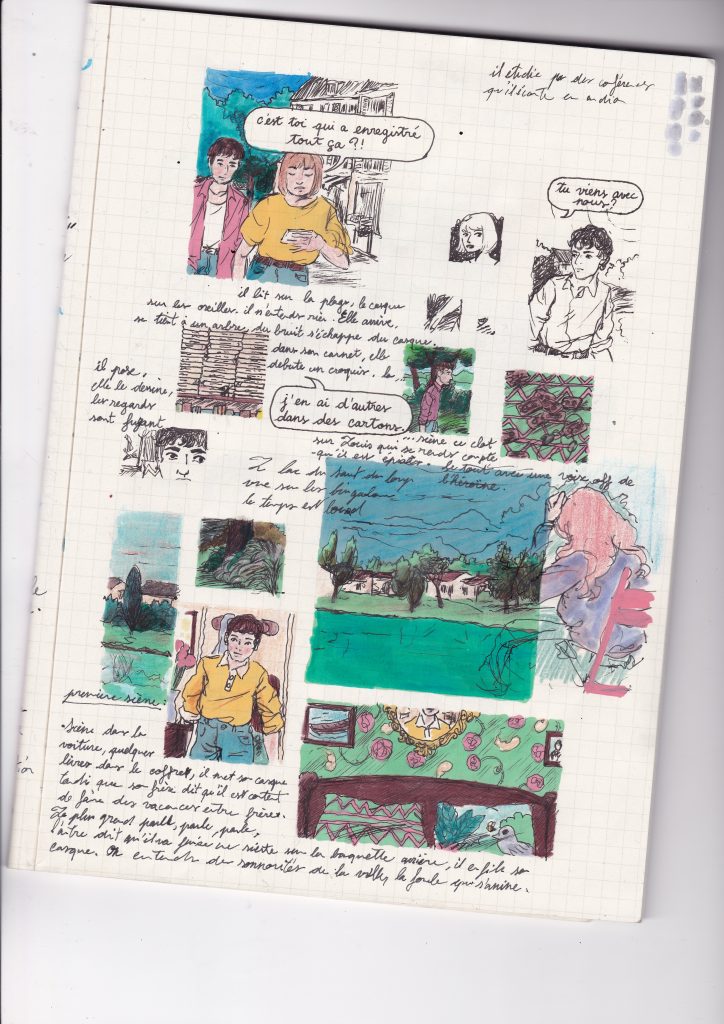 il étudie par des conférences
qu'il écoute en audio
c'est toi qui a enregistré
tout ça ?!
tu viens avec
nous?
il lit sur la plage, le casque
sur les oreilles. il n'entends rien. Elle arrive,
se tient à un arbre, du bruit s'échappe du casque.
dans son carnet, elle
débute un croquis. la...
il pose,
elle le dessine,
les regards
sont fuyant
j'en ai d'autres
dans des cartons.
...scène ce clot
sur Louis qui se rends compte
qu'il est épiater. le tout avec une voix off de
l'héroïne.
lac du saut du loup
vue sur les
le temps est lourd
première scène:
Scène dans la
voiture, quelques
livres dans le coffre, il met son casque
tandis que son frère dit qu'il est content
de faire des vacances entre frères.
Le plus grand parle, parle, parle,
l'autre dit qu'il va faire une sieste sur la banquette arrière, il enfile son
casque. On entends des sonorités de la ville, la foule qui s'anime.